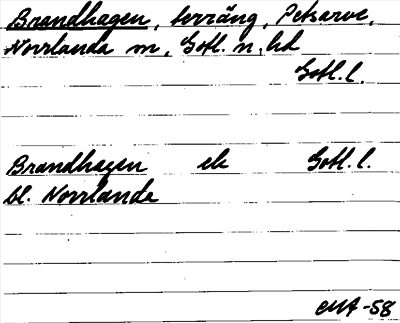 Brandhagen, terräng, Petsarve,
Norrlanda sn, Gotl. n. hd
Gotl. l.
Brandhagen ek Gotl. l.
bl. Norrlande
-58